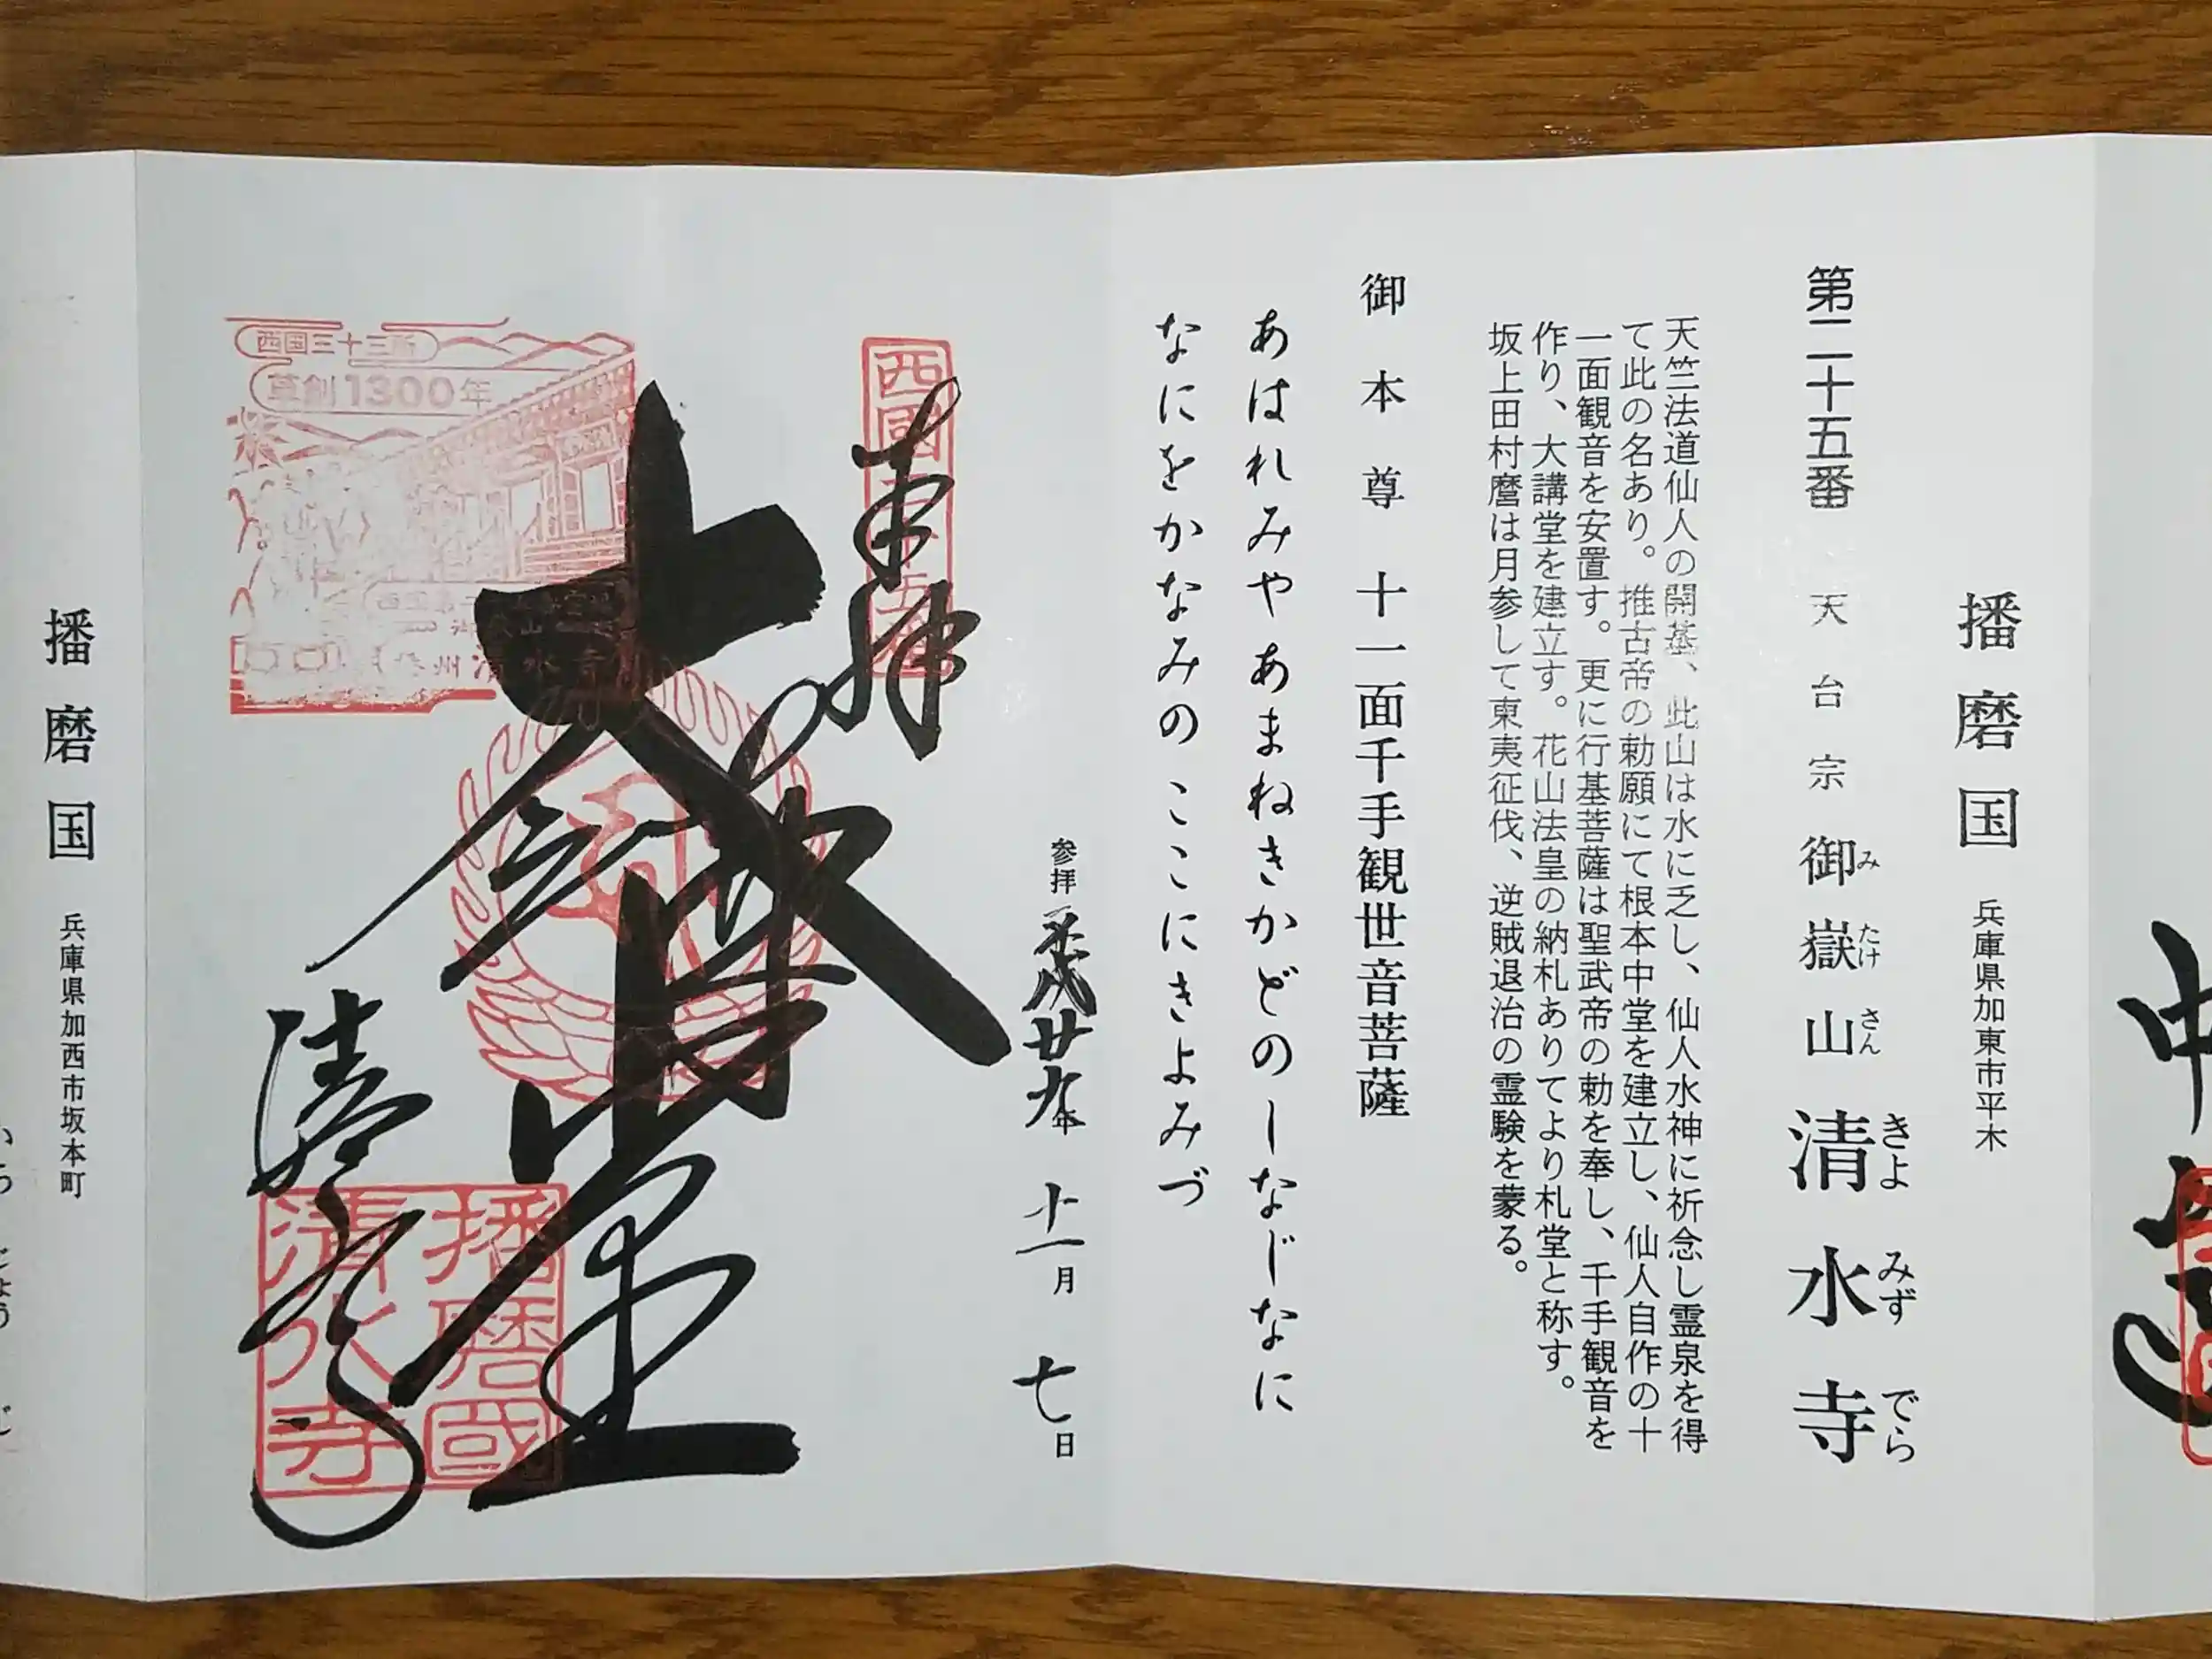 播磨国 兵庫県加東市平木
第二十五番 天台宗 御嶽山 清水寺
み たけ さん きよ みず でら
天竺法道仙人の開基、此山は水に乏し、仙人水神に祈念し霊泉を得
て此の名あり。推古帝の勅願にて根本中堂を建立し、仙人自作の十
一面観音を安置す。更に行基菩薩は聖武帝の勅を奉し、千手観音を
作り、大講堂を建立す。花山法皇の納札ありてより札堂と称す。
坂上田村麿は月参して東夷征伐、逆賊退治の霊験を蒙る。
御本尊 十一面千手観世音菩薩
あはれみやあまねきかどのしなじなに
なにをかなみのここにきよみづ
参拝 平成廿九年 十一月 七日
奉拝
大悲堂
清水寺
西国三十三所
草創1300年
播磨國
清水寺
播磨国 兵庫県加西市坂本町